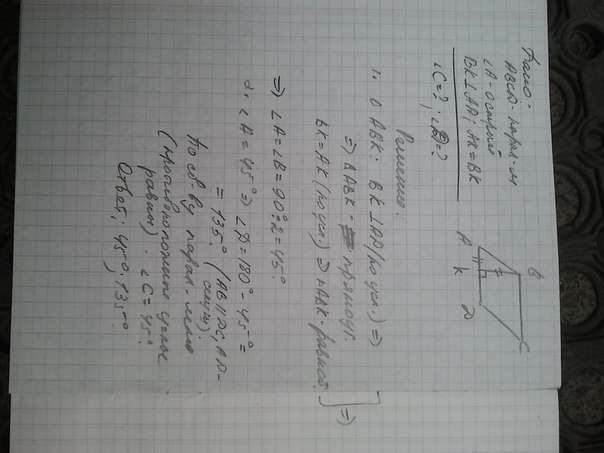 Дано:
ABCD - парал-м
∠A - острый
BK⊥AD; AK=BK
∠C=?; ∠D=?
B
C
A K D
Решение:
1. Δ ABK: BK⊥AD (по усл.) ⇒
⇒ ΔABK - прямоуг.
BK=AK (по усл.) ⇒ ΔABK - равноб. ⇒
⇒ ∠A=∠B=90°:2=45°
2. ∠A=45° ⇒ ∠D=180°-45°=
=135° (AB||DC, AD-
секущ)
По св-ву парал-мма
(противоположные углы
равны). ∠C=45°
Ответ: 45°; 135°